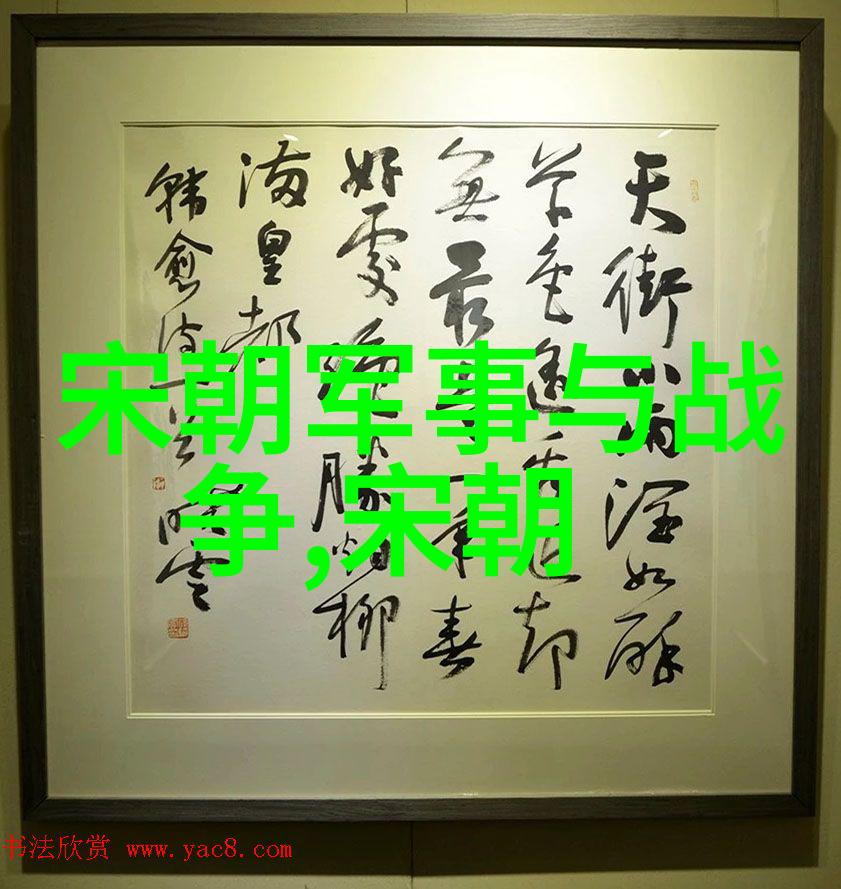 天街小雨润如酥
草色遥看近却
無最是一年春
好處绝勝烟柳
满皇都
韩愈诗一首
宋朝军事与战
争,宋朝
书法欣赏 www.yac8.com